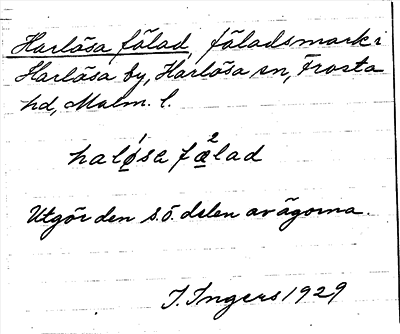 Harlösa fälad, fäladsmark i
Harlösa by, Harlösa sn, Frosta
hd, Malm. l.
halǿ̠sa fæ̠̀²lad
Utgör den s.ö. delen av ägorna.
I. Ingers 1929